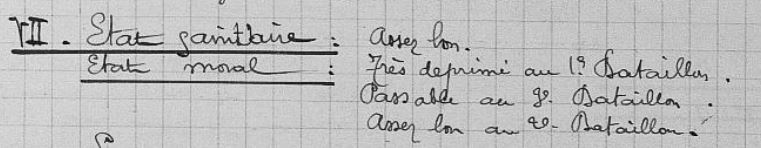 VII. Etat sanitaire : Assez bon.
Etat moral : Très deprimé au 1º Bataillon.
Passable au 3º. Bataillon.
Assez bon au 2º. Bataillon.